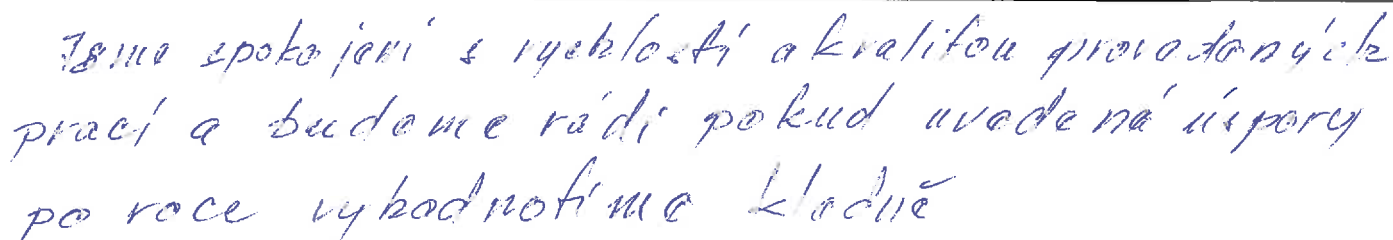 Jsme spokojeni s rychlostí a kvalitou prováděných
prací a budeme rádi pokud uvedená úspory
po roce vyhodnotíme kladně